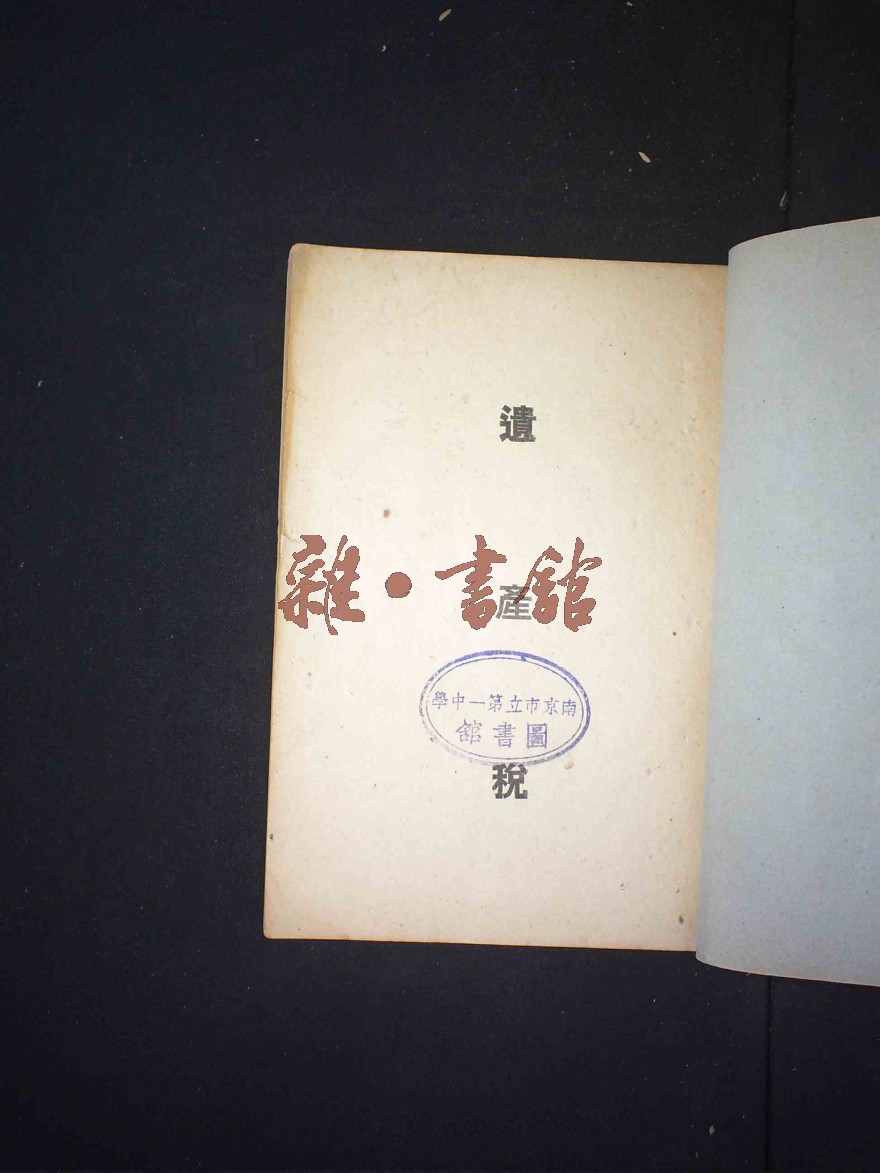 遺產稅
雜·書館
南京市立第一中學
圖書舘